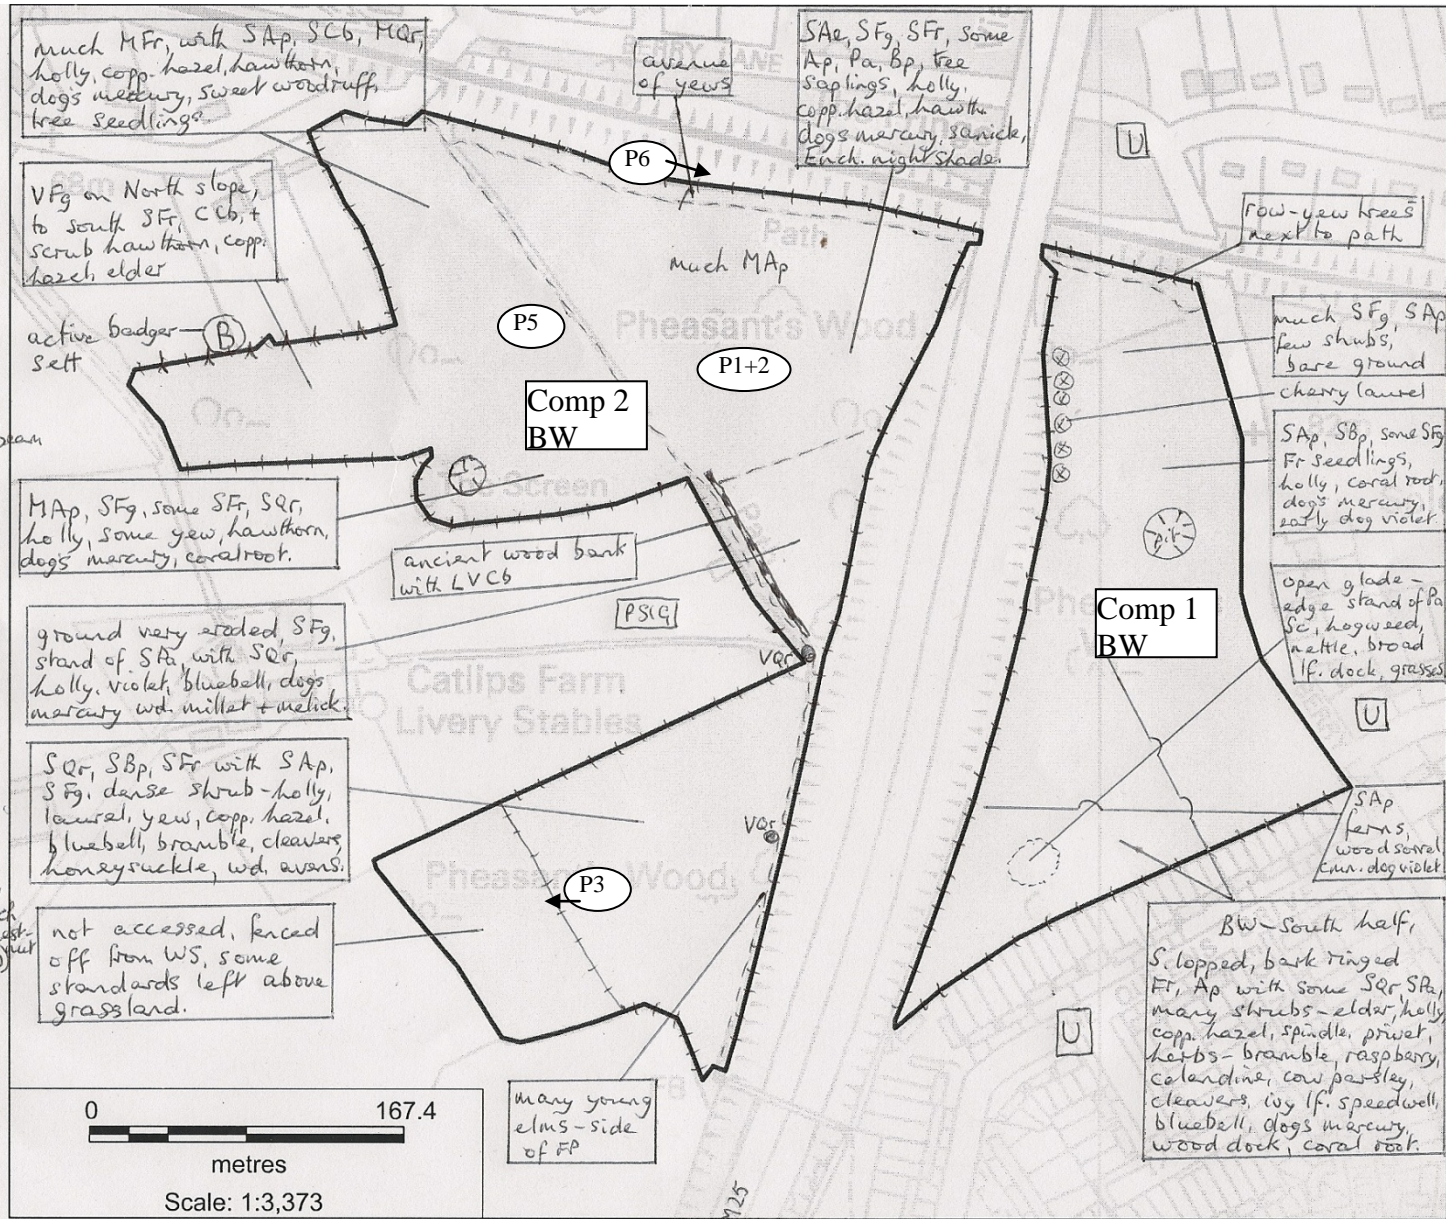 much MFr, with SAp, SCb, MQr,
holly, copp. hazel, hawthorn,
dog's mercury, sweet woodruff,
tree seedlings.
avenue
of yews
SAe, SFg, SFr, some
Ap, Pa, Bp, tree
saplings, holly,
copp. hazel, hawth.
dogs mercury, sanicle,
Ench. nightshade.
BERRY LANE
U
P6
68m
VFg on North slope,
to south SFr, CCb, +
scrub hawthorn, copp.
hazel, elder
Path
much MAp
row-yew trees
next to path
active badger
sett
B
P5
Pheasant's Wood
P1+2
much SFg, SAp
few shrubs,
bare ground
cherry laurel
Comp 2
BW
SAp, SBp, some SFg
Fr seedlings,
holly, coral root,
dog's mercury,
early dog violet
The Screen
MAp, SFg, some SFr, SQr,
holly, some yew, hawthorn,
dog's mercury, coralroot.
ancient wood bank
with LVCb
pit
PSIG
Comp 1
BW
open glade -
edge stand of Pa
Sc, hogweed,
nettle, broad
lf. dock, grasses
ground very eroded, SFg,
stand of SPa, with SQr,
holly, violet, bluebell, dogs
mercury wd. millet + melick.
VQr
Catlips Farm
Livery Stables
U
SQr, SBp, SFr with SAp,
SFg. dense shrub-holly,
laurel, yew, copp. hazel,
bluebell, bramble, cleavers,
honeysuckle, wd. avens.
VQr
SAp
ferns,
wood sorrel
cmn. dog violet
Pheasant's Wood
P3
not accessed, fenced
off from WS, some
standards left above
grassland.
BW-South half,
S. lopped, bark ringed
Fr, Ap with some SQr, SPa,
many shrubs-elder, holly
copp. hazel, spindle, privet,
herbs-bramble, raspberry,
celandine, cow parsley,
cleavers, ivy lf. speedwell,
bluebell, dogs mercury,
wood dock, coral root.
U
FB
many young
elms-side
of FP
M25
0 167.4
metres
Scale: 1:3,373